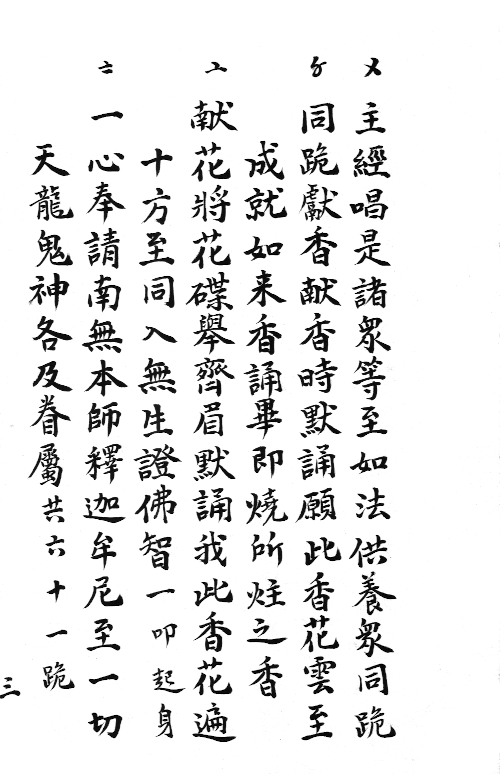 〤 主經唱是諸眾等至如法供養眾同跪
〥 同跪獻香献香時默誦願此香花雲至
成就如来香誦畢即燒所炷之香
〦 献花將花碟舉齊眉默誦我此香花遍
十方至同入無生證佛智一叩起身
〧 一心奉請南無本師釋迦牟尼至一切
天龍鬼神各及眷屬共六十一跪
三